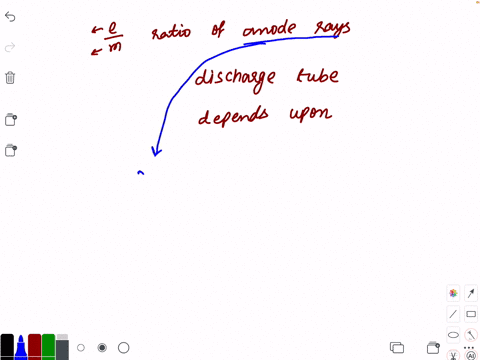 e/m ratio of anode rays
discharge tube
depends upon